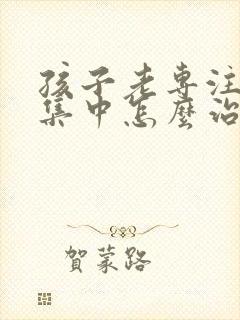 孩子老專注
集中怎麼治
賀蒙路